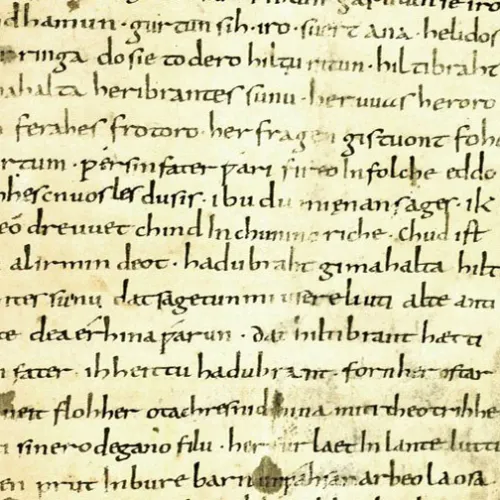 garutun se iro
dhamun · gurtun sih · iro · suert ana · helidos
ringa do sie to dero hiltu ritun · hiltibraht
mahalta heribrantes sunu · her uuas heroro
ferahes frotoro · her fragen gistuont foh
ortum · ƿer sin fater ƿari fireo In folche eddo
hhes cnuosles du sis · ibu du mi ęnan sages · ik
eo dre uuet chind In chunincriche · Chud ist
al irmin deot · hadubraht gimahalta hilt
ntes sunu dat sagetun mi usere liuti alte anti
te dea érhina ƿarun · dat hiltibrant hætti
n fater · ih heittu hadubrant · forn her ostar
neit floh her otachres nid hina miti theotrihhe
sinero degano filu · her furlaet In lante lutti
en prut In bure barn unƿahsan arbeo laosa